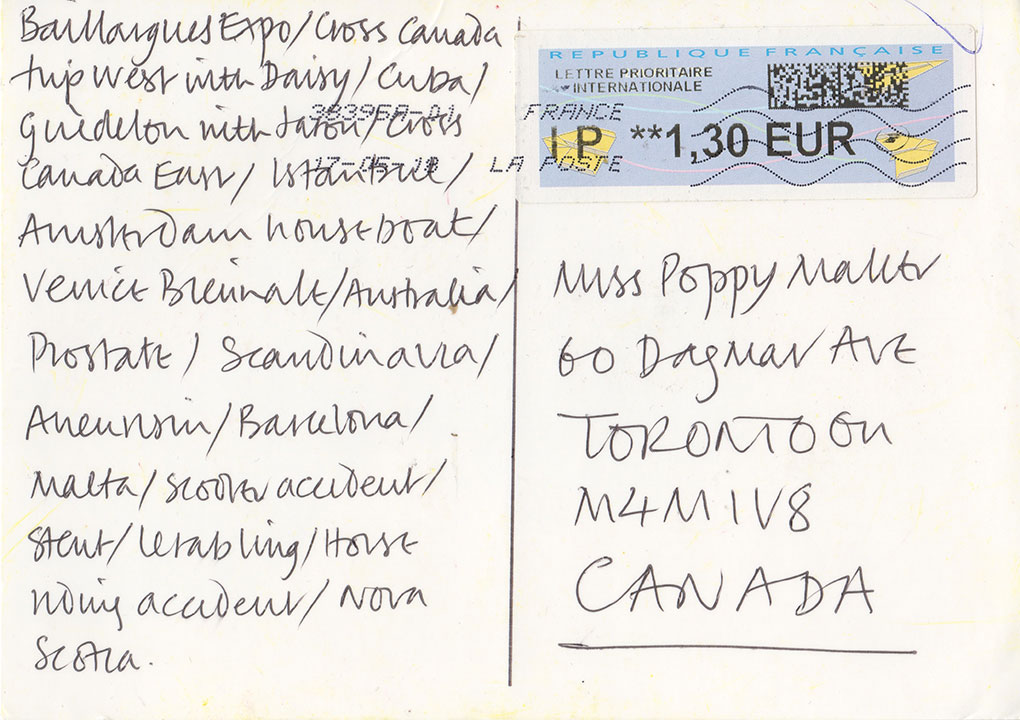 Baillargues Expo/Cross Canada
trip West with Daisy/Cuba/
Guédelon with Jason/Cross
Canada East/Istanbul/
Amsterdam houseboat/
Venice Biennale/Australia/
Prostate/Scandinavia/
Aneurism/Barcelona/
Malta/scooter accident/
Stent/ /Horse
riding accident/Nova
Scotia.
REPUBLIQUE FRANÇAISE
LETTRE PRIORITAIRE
INTERNATIONALE
383968-01 FRANCE
IP **1,30 EUR
17-05-18 LA POSTE
Miss Poppy
60 Dagmar Ave
TORONTO ON
M4M 1V8
CANADA